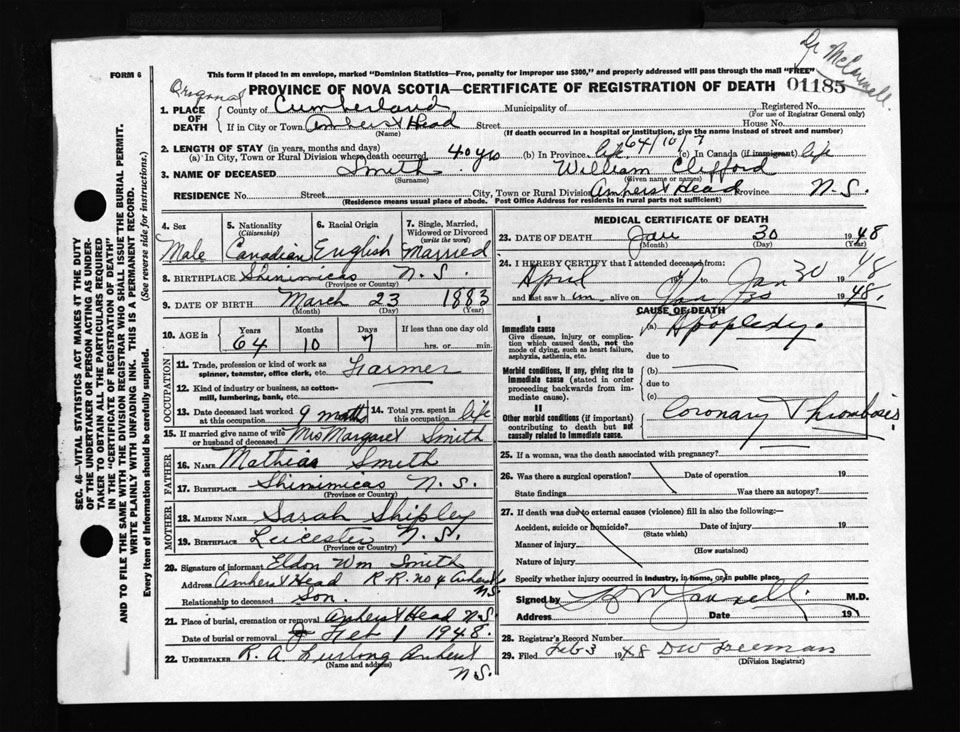 Dr McConnell.
FORM 6
This form if placed in an envelope, marked "Dominion Statistics—Free, penalty for improper use $300," and properly addressed will pass through the mail "FREE"
Original
PROVINCE OF NOVA SCOTIA—CERTIFICATE OF REGISTRATION OF DEATH 01185
1. PLACE OF DEATH
County of Cumberland Municipality of Registered No.
(For use of Registrar General only)
If in City or Town Amherst Head Street House No.
(Name) (If death occurred in a hospital or institution, give the name instead of street and number)
2. LENGTH OF STAY (in years, months and days) 64/10/7
(a) In City, Town or Rural Division where death occurred 40 yrs (b) In Province life (c) In Canada (if immigrant) life
3. NAME OF DECEASED Smith William Clifford
(Surname) (Given name or names)
RESIDENCE No. Street City, Town or Rural Division Amherst Head Province N.S.
(Residence means usual place of abode. Post Office Address for residents in rural parts not sufficient)
4. Sex Male
5. Nationality (Citizenship) Canadian
6. Racial Origin English
7. Single, Married, Widowed or Divorced (write the word) Married
8. BIRTHPLACE Shinimicas N.S.
(Province or Country)
9. DATE OF BIRTH March 23 1883
(Month) (Day) (Year)
10. AGE in Years Months Days If less than one day old
64 10 7 hrs. or min.
OCCUPATION
11. Trade, profession or kind of work as spinner, teamster, office clerk, etc. Farmer
12. Kind of industry or business, as cotton-mill, lumbering, bank, etc.
13. Date deceased last worked at this occupation 9 mths 14. Total yrs. spent in this occupation life
15. If married give name of wife or husband of deceased Mrs Margaret Smith
FATHER
16. NAME Mathias Smith
17. BIRTHPLACE Shinimicas N.S.
(Province or Country)
MOTHER
18. MAIDEN NAME Sarah Shipley
19. BIRTHPLACE Leicester N.S.
(Province or Country)
20. Signature of informant Eldon Wm Smith
Address Amherst Head R.R. no 4 Amherst N.S.
Relationship to deceased Son.
21. Place of burial, cremation or removal Amherst Head N.S.
Date of burial or removal Feb 1 1948.
22. UNDERTAKER R. A. Furlong Amherst N.S.
(Name and address)
MEDICAL CERTIFICATE OF DEATH
23. DATE OF DEATH Jan 30 1948
(Month) (Day) (Year)
24. I HEREBY CERTIFY that I attended deceased from:
April 47 to Jan 30 48
and last saw him alive on Jan 1948.
CAUSE OF DEATH
I
Immediate cause
Give disease, injury or complication which caused death, not the mode of dying, such as heart failure, asphyxia, asthenia, etc.
(a) Apoplexy.
due to
Morbid conditions, if any, giving rise to immediate cause (stated in order proceeding backwards from immediate cause).
(b)
due to
(c)
II
Other morbid conditions (if important) contributing to death but not causally related to immediate cause.
Coronary Thrombosis
25. If a woman, was the death associated with pregnancy?
26. Was there a surgical operation? Date of operation 19
State findings Was there an autopsy?
27. If death was due to external causes (violence) fill in also the following:—
Accident, suicide or homicide? Date of injury 19
(State which)
Manner of injury
(How sustained)
Nature of injury
Specify whether injury occurred in industry, in home, or in public place
Signed by M.D.
Address Date 19
28. Registrar's Record Number
29. Filed Feb 3 1948 DW Freeman
(Division Registrar)
SEC. 46—VITAL STATISTICS ACT MAKES IT THE DUTY
OF THE UNDERTAKER OR PERSON ACTING AS UNDER-
TAKER TO OBTAIN ALL THE PARTICULARS REQUIRED
IN THE "CERTIFICATE OF REGISTRATION OF DEATH"
AND TO FILE THE SAME WITH THE DIVISION REGISTRAR WHO SHALL ISSUE THE BURIAL PERMIT.
WRITE PLAINLY WITH UNFADING INK. THIS IS A PERMANENT RECORD.
Every item of information should be carefully supplied. (See reverse side for instructions.)